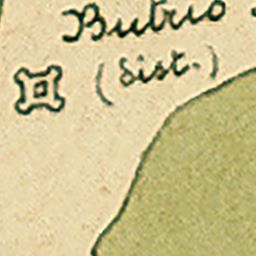 Butrio
(dist.)